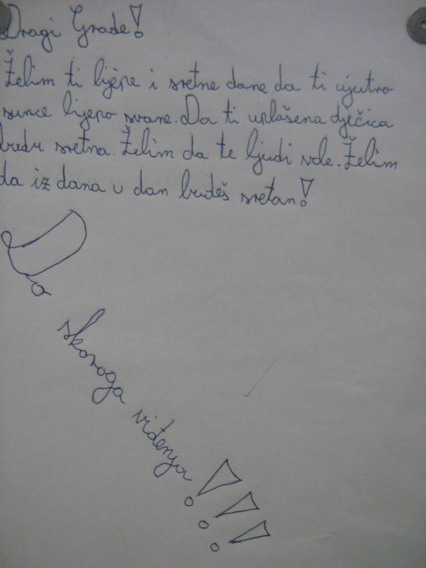 Dragi Grade!
Želim ti lijepe i sretne dane da ti ujutro
sunce lijepo svane. Da ti uplašena dječica
budu sretna Želim da te ljudi vole. Želim
da iz dana u dan budeš sretan!
Do
skoroga
viđenja!!!